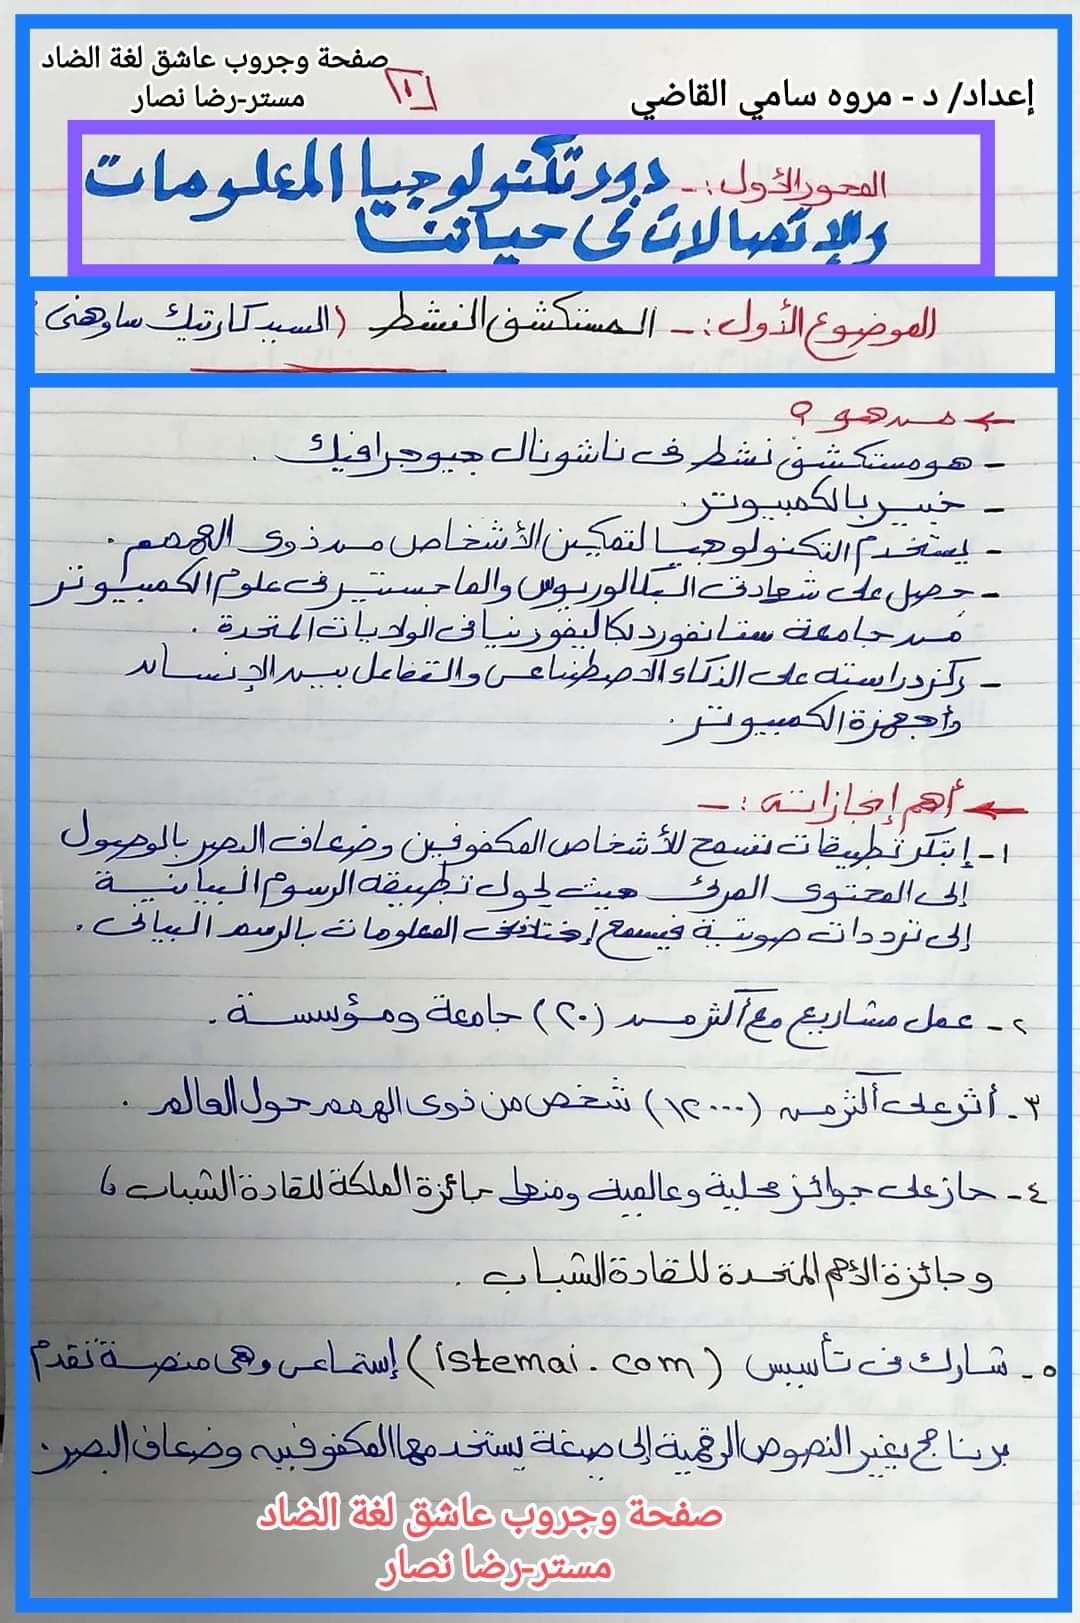 صفحة وجروب عاشق لغة الضاد
مستر-رضا نصار
إعداد/ د - مروه سامي القاضي
١
المحور الأول :- دور تكنولوجيا المعلومات
والإتصالات فى حياتنا
الموضوع الأول :- المستكشف النشط (السيد كارتيك ساوهنى)
← من هو ؟
- هو مستكشف نشط فى ناشونال جيوجرافيك .
- خبير بالكمبيوتر .
- يستخدم التكنولوجيا لتمكين الأشخاص من ذوى الهمم .
- حصل على شهادتى البكالوريوس والماجستير فى علوم الكمبيوتر
من جامعة ستانفورد بكاليفورنيا فى الولايات المتحدة .
- ركز دراسته على الذكاء الاصطناعى والتفاعل بين الإنسان
وأجهزة الكمبيوتر .
← أهم إنجازاته :-
١- إبتكر تطبيقات تسمح للأشخاص المكفوفين وضعاف البصر بالوصول
إلى المحتوى المرئى حيث يحول تطبيقه الرسوم البيانية
إلى ترددات صوتية فيسمع إختلاف المعلومات بالرسم البيانى .
٢- عمل مشاريع مع أكثر من (٢٠) جامعة ومؤسسة .
٣- أثر على أكثر من (١٢٠٠٠) شخص من ذوى الهمم حول العالم .
٤- حاز على جوائز محلية وعالمية ومنها جائزة الملكة للقادة الشباب ،
وجائزة الأمم المتحدة للقادة الشباب .
٥- شارك فى تأسيس (istemai.com) إستماعى وهى منصة تقدم
برنامج يغير النصوص الرقمية إلى صيغة يستخدمها المكفوفين وضعاف البصر .
صفحة وجروب عاشق لغة الضاد
مستر-رضا نصار